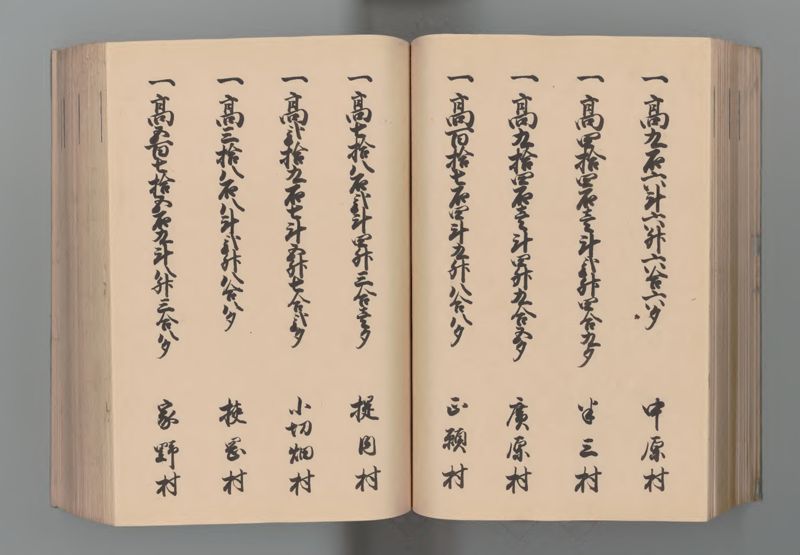 一高九石六斗六升六合六夕 中原村
一高四拾四石壱斗弐升四合九夕 半三村
一高九拾四石壱斗四升九合五夕 廣原村
一高百拾七石四斗九升八合八夕 正額村
一高七拾八石弐斗四升三合壱夕 村
一高弐拾九石七斗五升七合弐夕 小切畑村
一高三拾八石八斗弐升八合八夕 村
一高五百七拾五石九斗八升三合八夕 家野村